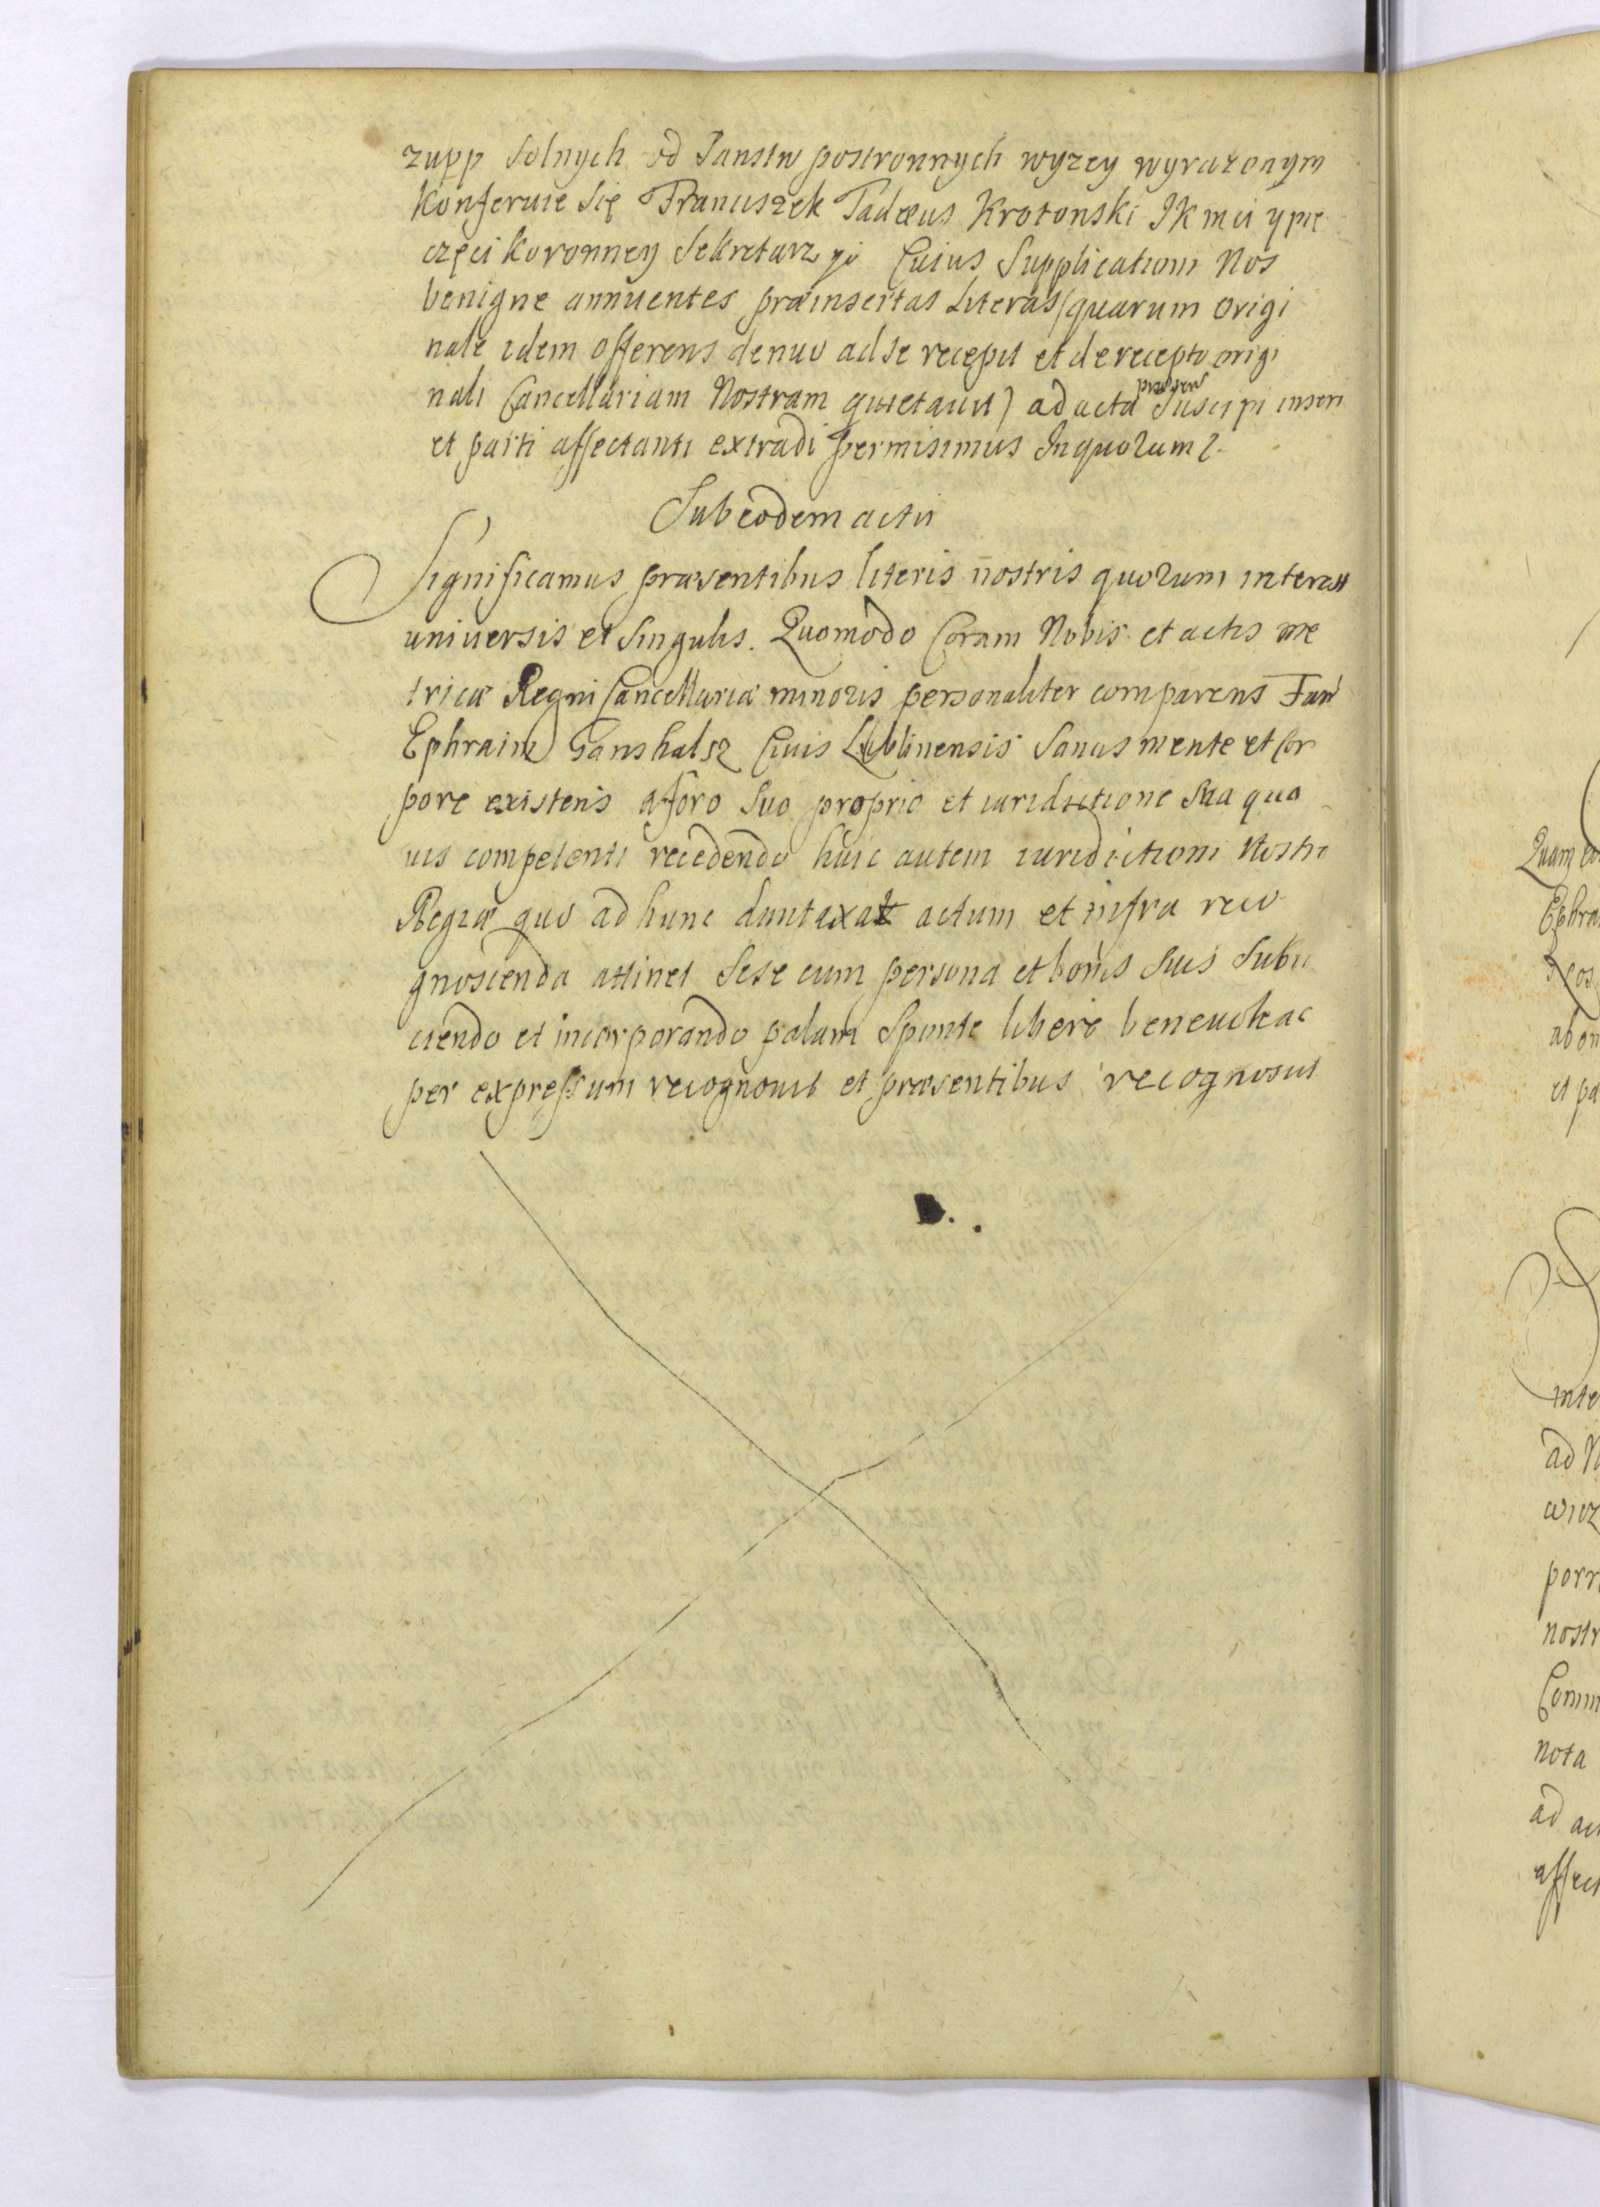 zupp Solnych od Panstw postronnych wyzey wyrazonym
Konferuie Się Franciszek Tadeus Krotonski JK mci y pie
częci koronney Sekretarz Cuius Supplicationi Nos
benigne annuentes præinsertas Literas (quarum origi
nale idem offerens denuo ad se recepit et de recepto origi
nali Cancellariam Nostram quietauit) ad acta præsentia Suscipi inseri
et parti affectanti extradi permisimus In quorum
Sub eodem actu
Significamus præsentibus literis nostris quorum interest
uniuersis et Singulis. Quomodo Coram Nobis et actis me
tricæ Regni Cancellariæ minoris personaliter comparens Fam
Ephraim Ganshalsz Ciuis Lublinensis Sanus mente et Cor
pore existens a foro Suo proprio et iuridictione Sua qua
uis competenti recedendo huic autem iuridictioni Nostræ
Regiæ quo ad hunc duntaxat actum et infra reco
gnoscenda attinet Sese cum persona et bonis Suis Subii
ciendo et incorporando palam Sponte libere beneuole ac
per expressum recognouit et præsentibus recognoscit
Quam
Ephra
eos
ab om
et pa
inte
ad N
wicz
porr
nostr
Comm
nota
ad ac
affect